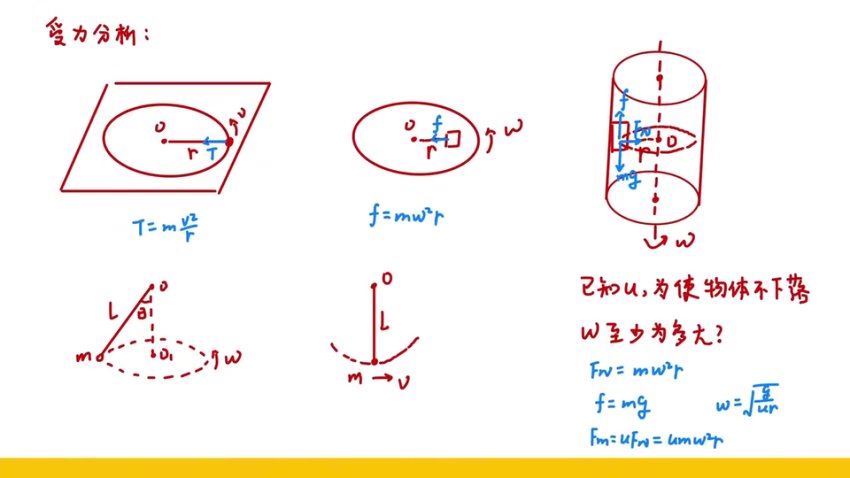 受力分析:
O r T v
T=m v²/r
O f r ω
f=mω²r
f FN O r mg ω
O L θ m O₁ ω
O L m v
已知u,为使物体不下落
ω至少为多大?
FN=mω²r
f=mg ω=√(g/ur)
Fm=uFN=umω²r